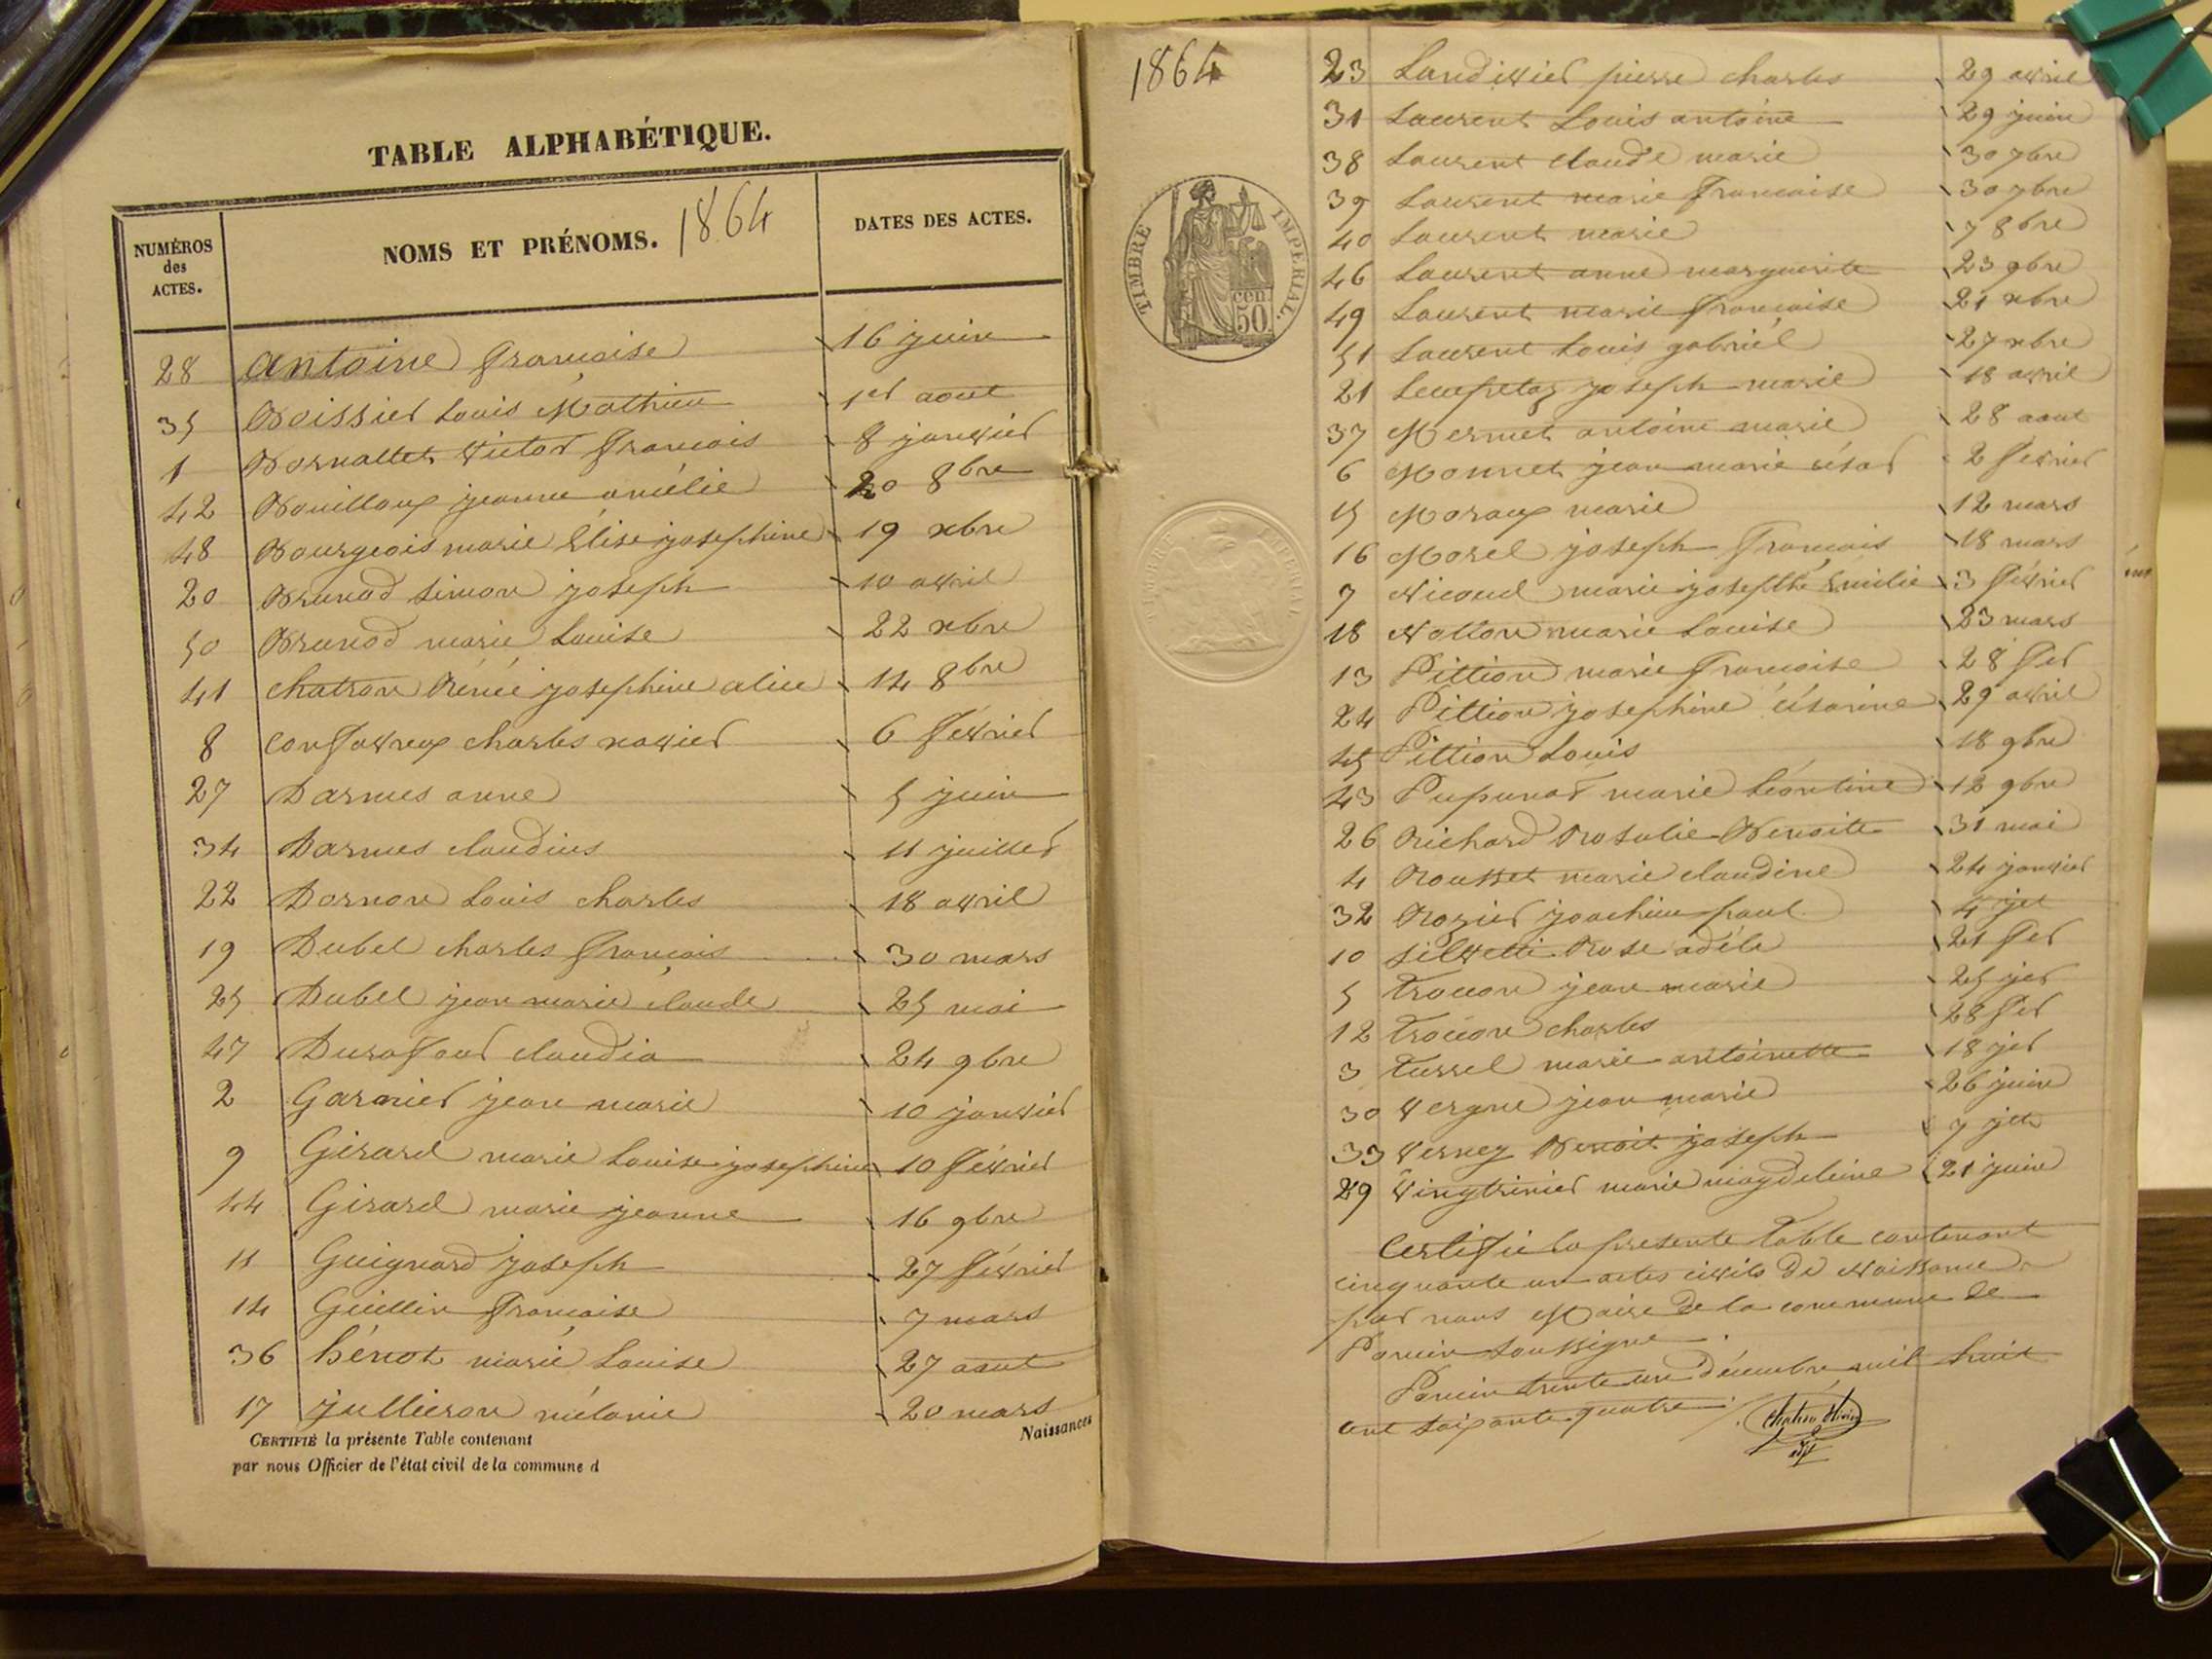 TABLE ALPHABÉTIQUE.
NUMÉROS des ACTES. NOMS ET PRÉNOMS. 1864 DATES DES ACTES.
28 Antoine françoise 16 juin
35 Boissier Louis Mathieu 1er aout
1 Bornallet Victor françois 8 janvier
42 Bouilloux jeanne amélie 20 8bre
48 Bourgeois marie Élise josephine 19 xbre
20 Brunod simon joseph 10 avril
50 Brunod marie Louise 22 xbre
41 chatron Rénée josephine alice 14 8bre
8 Confavreux charles xavier 6 février
27 Darmes anne 5 juin
34 Darmes claudius 11 juillet
22 Dornon Louis charles 18 avril
19 Dubel charles françois 30 mars
25 Dubel jean marie claude 25 mai
47 Duraffour claudia 24 9bre
2 Garnier jean marie 10 janvier
9 Girard marie Louise josephine 10 février
44 Girard marie jeanne 16 9bre
11 Guignard joseph 27 février
14 Guillin françoise 7 mars
36 hénot marie Louise 27 aout
17 jullieron mélanie 20 mars
CERTIFIÉ la présente Table contenant Naissances
par nous Officier de l'état civil de la commune d
1864
TIMBRE IMPÉRIAL.
50 cen
23 Landivier pierre charles 29 avril
31 Laurent Louis antoine 29 juin
38 Laurent claude marie 30 7bre
39 Laurent marie françoise 30 7bre
40 Laurent marie 7 8bre
46 Laurent anne marguerite 23 9bre
49 Laurent marie françoise 21 xbre
51 Laurent Louis gabriel 27 xbre
21 joseph marie 18 avril
37 Mermet antoine marie 28 aout
6 Monnet jean marie césar 2 février
15 Moraux marie 12 mars
16 Morel joseph françois 18 mars
7 Nicoud marie josephe Émilie 3 février
18 Notton marie Louise 23 mars
13 Pittion marie françoise 28 fer
24 Pittion josephine césarine 29 avril
45 Pittion Louis 18 9bre
43 Pupunat marie Léontine 12 9bre
26 Richard Rosalie Benoite 31 mai
4 Rousset marie claudine 24 janvier
32 Rozier joachim paul 4 jet
10 Silvetti Rose adéle 21 fer
5 Troccon jean marie 25 jer
12 Troccon charles 28 fer
3 Turrel marie antoinette 18 jer
30 Vergne jean marie 26 juin
33 Verney Benoit joseph 7 jet
29 Vingtrinier marie magdeleine 21 juin
Certifié la présente Table contenant
cinquante un actes civils De Naissance
par nous Maire De la commune De
Poncin Soussigné
Poncin trente un décembre mil huit
cent soixante quatre.